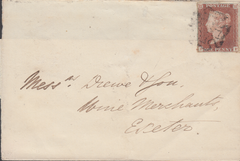 POSTAGE
Messrs. Drewe & Son,
Wine Merchants,
Exeter.